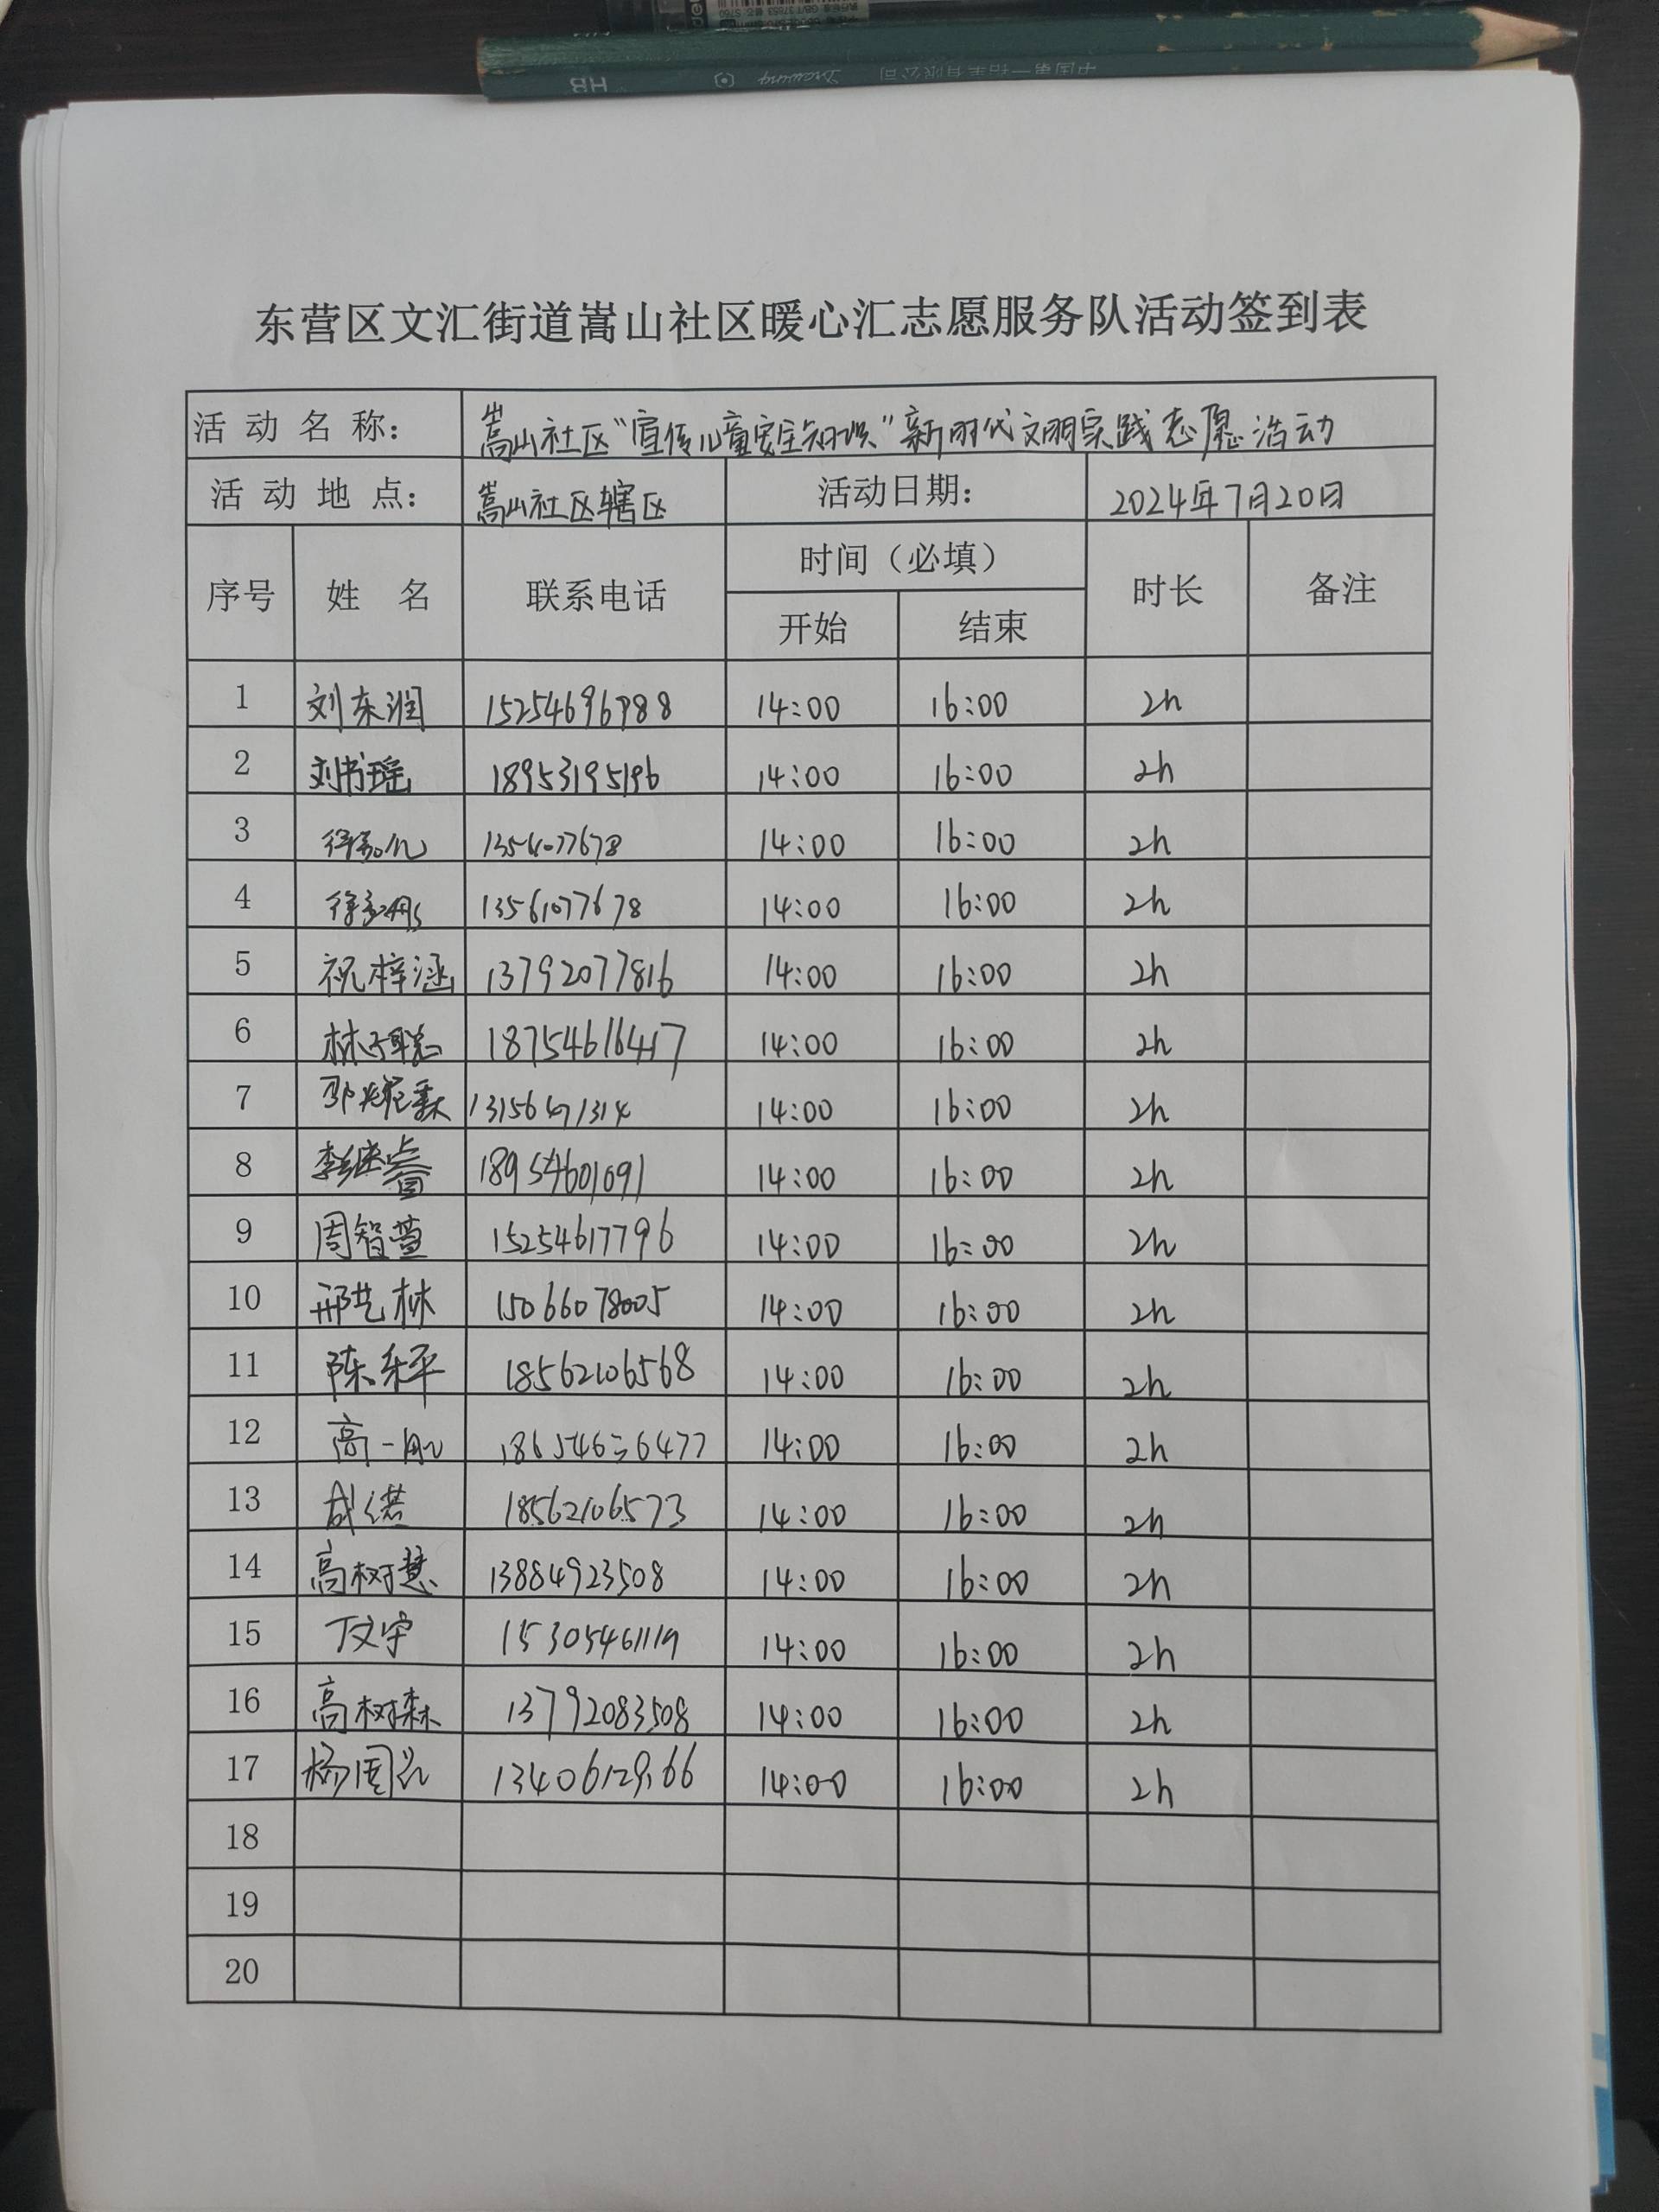 HB Drawing 中国第一铅笔有限公司
东营区文汇街道嵩山社区暖心汇志愿服务队活动签到表
活动名称： 嵩山社区“宣传儿童安全知识”新时代文明实践志愿活动
活动地点： 嵩山社区辖区 活动日期： 2024年7月20日
序号 姓名 联系电话 时间（必填） 时长 备注
开始 结束
1 刘东润 15254696988 14:00 16:00 2h
2 刘书瑶 18953195196 14:00 16:00 2h
3 14:00 16:00 2h
4 13561077678 14:00 16:00 2h
5 祝梓涵 13792077816 14:00 16:00 2h
6 林子聪 18754616417 14:00 16:00 2h
7 14:00 16:00 2h
8 李继睿 18954601091 14:00 16:00 2h
9 周智萱 15254617796 14:00 16:00 2h
10 邢艺林 15066078005 14:00 16:00 2h
11 陈乐平 18562106568 14:00 16:00 2h
12 18654636477 14:00 16:00 2h
13 成诺 18562106573 14:00 16:00 2h
14 高树慧 13884923508 14:00 16:00 2h
15 丁文宇 15305461119 14:00 16:00 2h
16 高树森 13792083508 14:00 16:00 2h
17 13406129166 14:00 16:00 2h
18
19
20